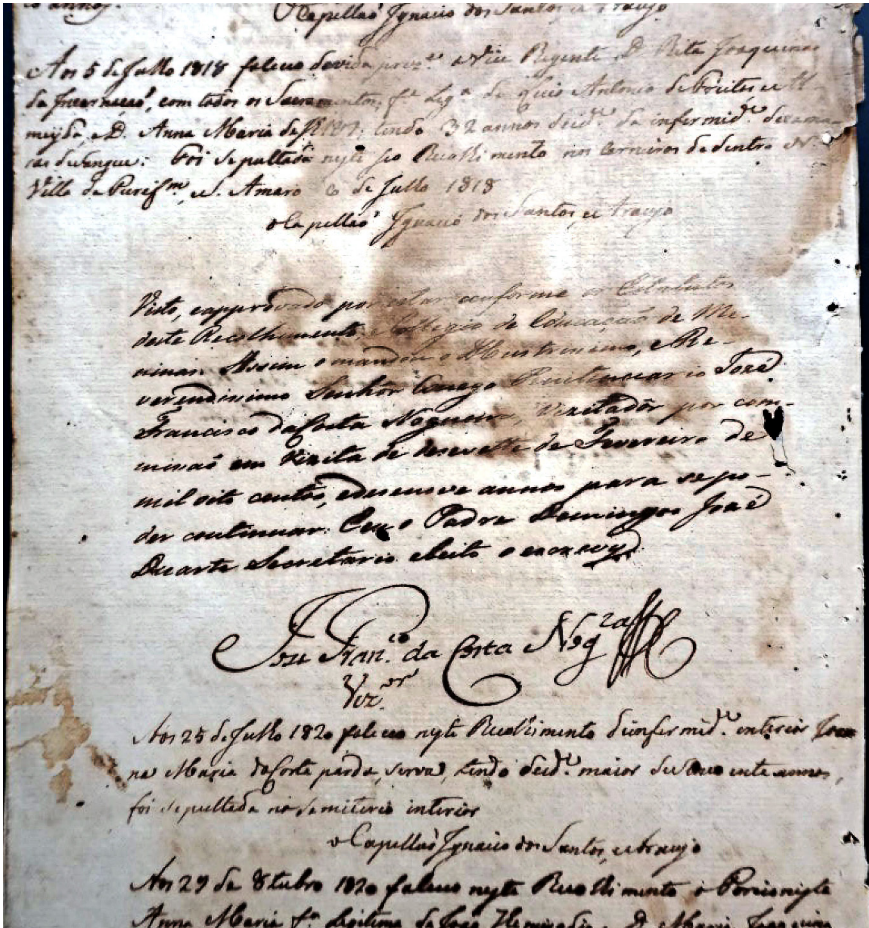 co annos.
O Capellaõ Ignacio dos Santos, e Araujo
Aos 5 de Julho 1818 faleceo da vida prez.te a Vice Regente D. Rita Joaquina
da Incarnacaõ, com todos os Sacramentos, f.a Leg.a de Antonio de
D. Anna Maria de tendo 32 annos de id.e da infermid.e de
de sangue: foi sepultada nyte Recolhimento nos carneiros de dentro
Villa da Purif.m, e S. Amaro 6 de Julho 1818
o Capellaõ Ignacio dos Santos, e Araujo
Visto, e approvado por estar conforme os Estatutos
deste Recolhimento, e Collegio de Educaçaõ de Me-
ninas. Assim o mandou o Illustrissimo, e Re-
verendissimo Senhor Conego Penitenciario José
Francisco da Costa Nogueira, Vizitador por com-
missaõ em Vizita de desesette de Fevereiro de
mil oito centos, e desenove annos para se po-
der continuar. Eeu o Padre Domingos José
Duarte Secretario eleito o escrevy
José Fran.co da Costa Nog.ra
Viz.or
Aos 25 de Julho 1820 faleceo nyte Recolhimento d'infermid.e interior Joan
na Maria da Corte parda, serva, tendo de id.e maior de annos,
foi sepultada no semiterio interior
o Capellaõ Ignacio dos Santos, e Araujo
Aos 29 de 8tubro 1820 faleceo nyte Recolhimento a Porcionyte
Anna Maria f.a Legitima de D. Maria Joaquina